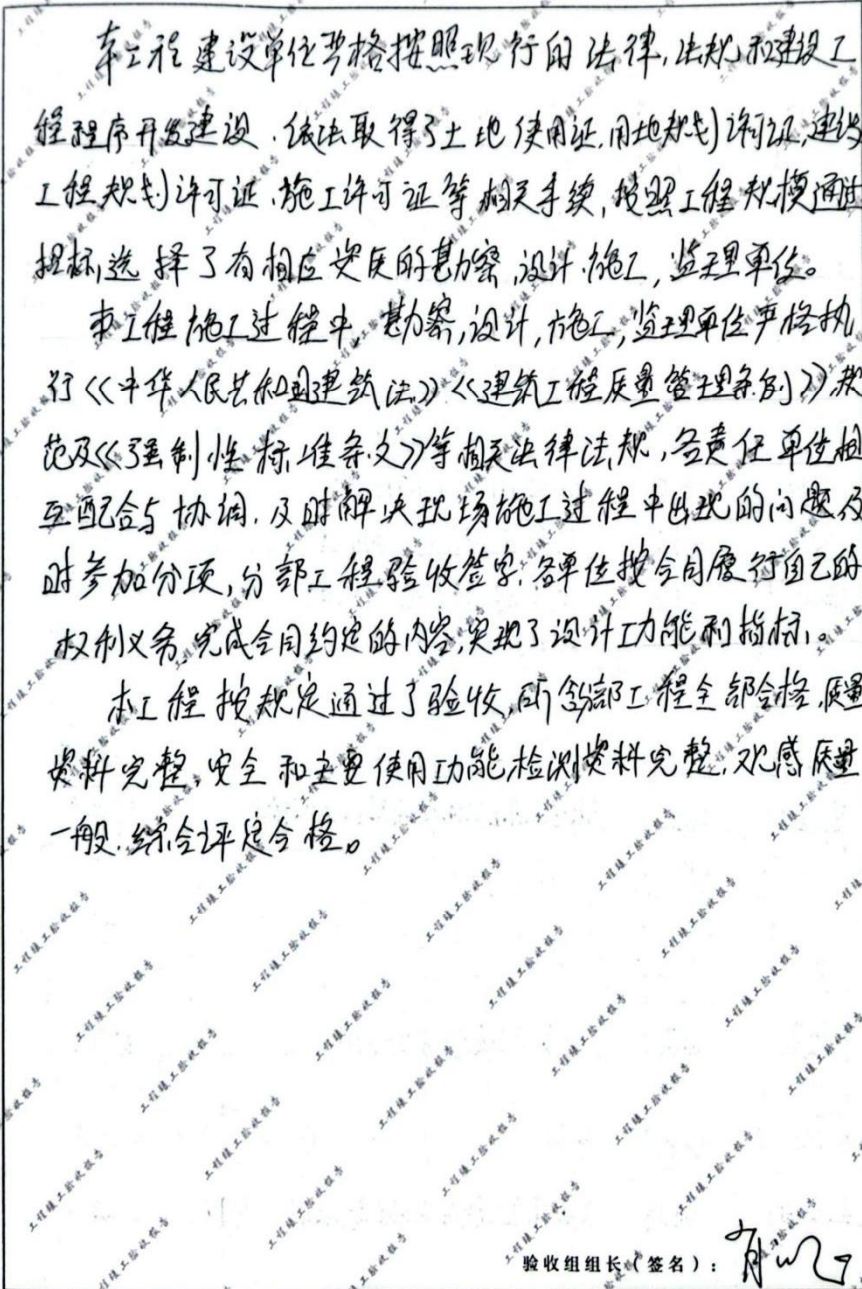 本工程建设单位严格按照现行的法律,法规和建设工
程程序开发建设.依法取得了土地使用证,用地规划许可证,建设
工程规划许可证、施工许可证等相关手续,按照工程规模通过
招标,选择了有相应资质的勘察,设计.施工,监理单位。
本工程施工过程中,勘察,设计,施工,监理单位严格执
行《中华人民共和国建筑法》《建筑工程质量管理条例》规
范及《强制性标准条文》等相关法律法规,各责任单位相
互配合与协调.及时解决现场施工过程中出现的问题及
时参加分项,分部工程验收签字.各单位按合同履行自己的
权利义务,完成合同约定的内容,实现了设计功能和指标。
本工程按规定通过了验收,所含分部工程全部合格,质量
资料完整,安全和主要使用功能,检测资料完整,观感质量
一般.综合评定合格。
验收组组长(签名):
工程竣工验收报告